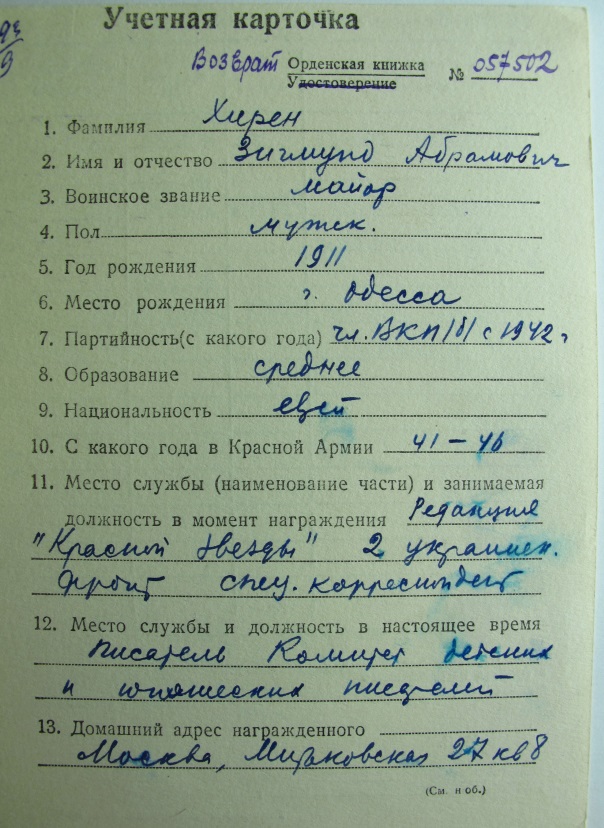 Учетная карточка
93/9
Возврат Орденская книжка № 057502
Удостоверение
1. Фамилия Хирен
2. Имя и отчество Зигмунд Абрамович
3. Воинское звание майор
4. Пол мужск.
5. Год рождения 1911
6. Место рождения г. Одесса
7. Партийность(с какого года) чл. ВКП/б/ с 1942 г
8. Образование среднее
9. Национальность еврей
10. С какого года в Красной Армии 41 – 46
11. Место службы (наименование части) и занимаемая
должность в момент награждения Редакция
"Красной звезды" 2 украинск.
фронт спец. корреспондент
12. Место службы и должность в настоящее время
писатель Комитет детских
и юношеских писателей
13. Домашний адрес награжденного
Москва, 27 кв 8
(См. н об.)